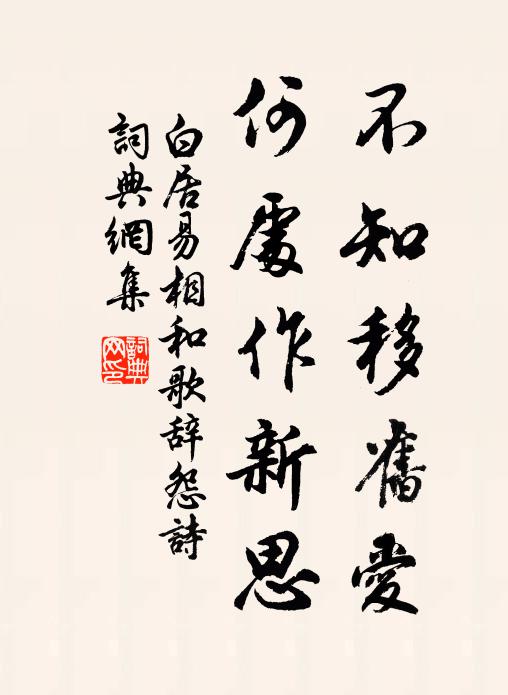 不知移舊愛
何處作新思
白居易相和歌辞怨詩
詞典網集
詞典網印